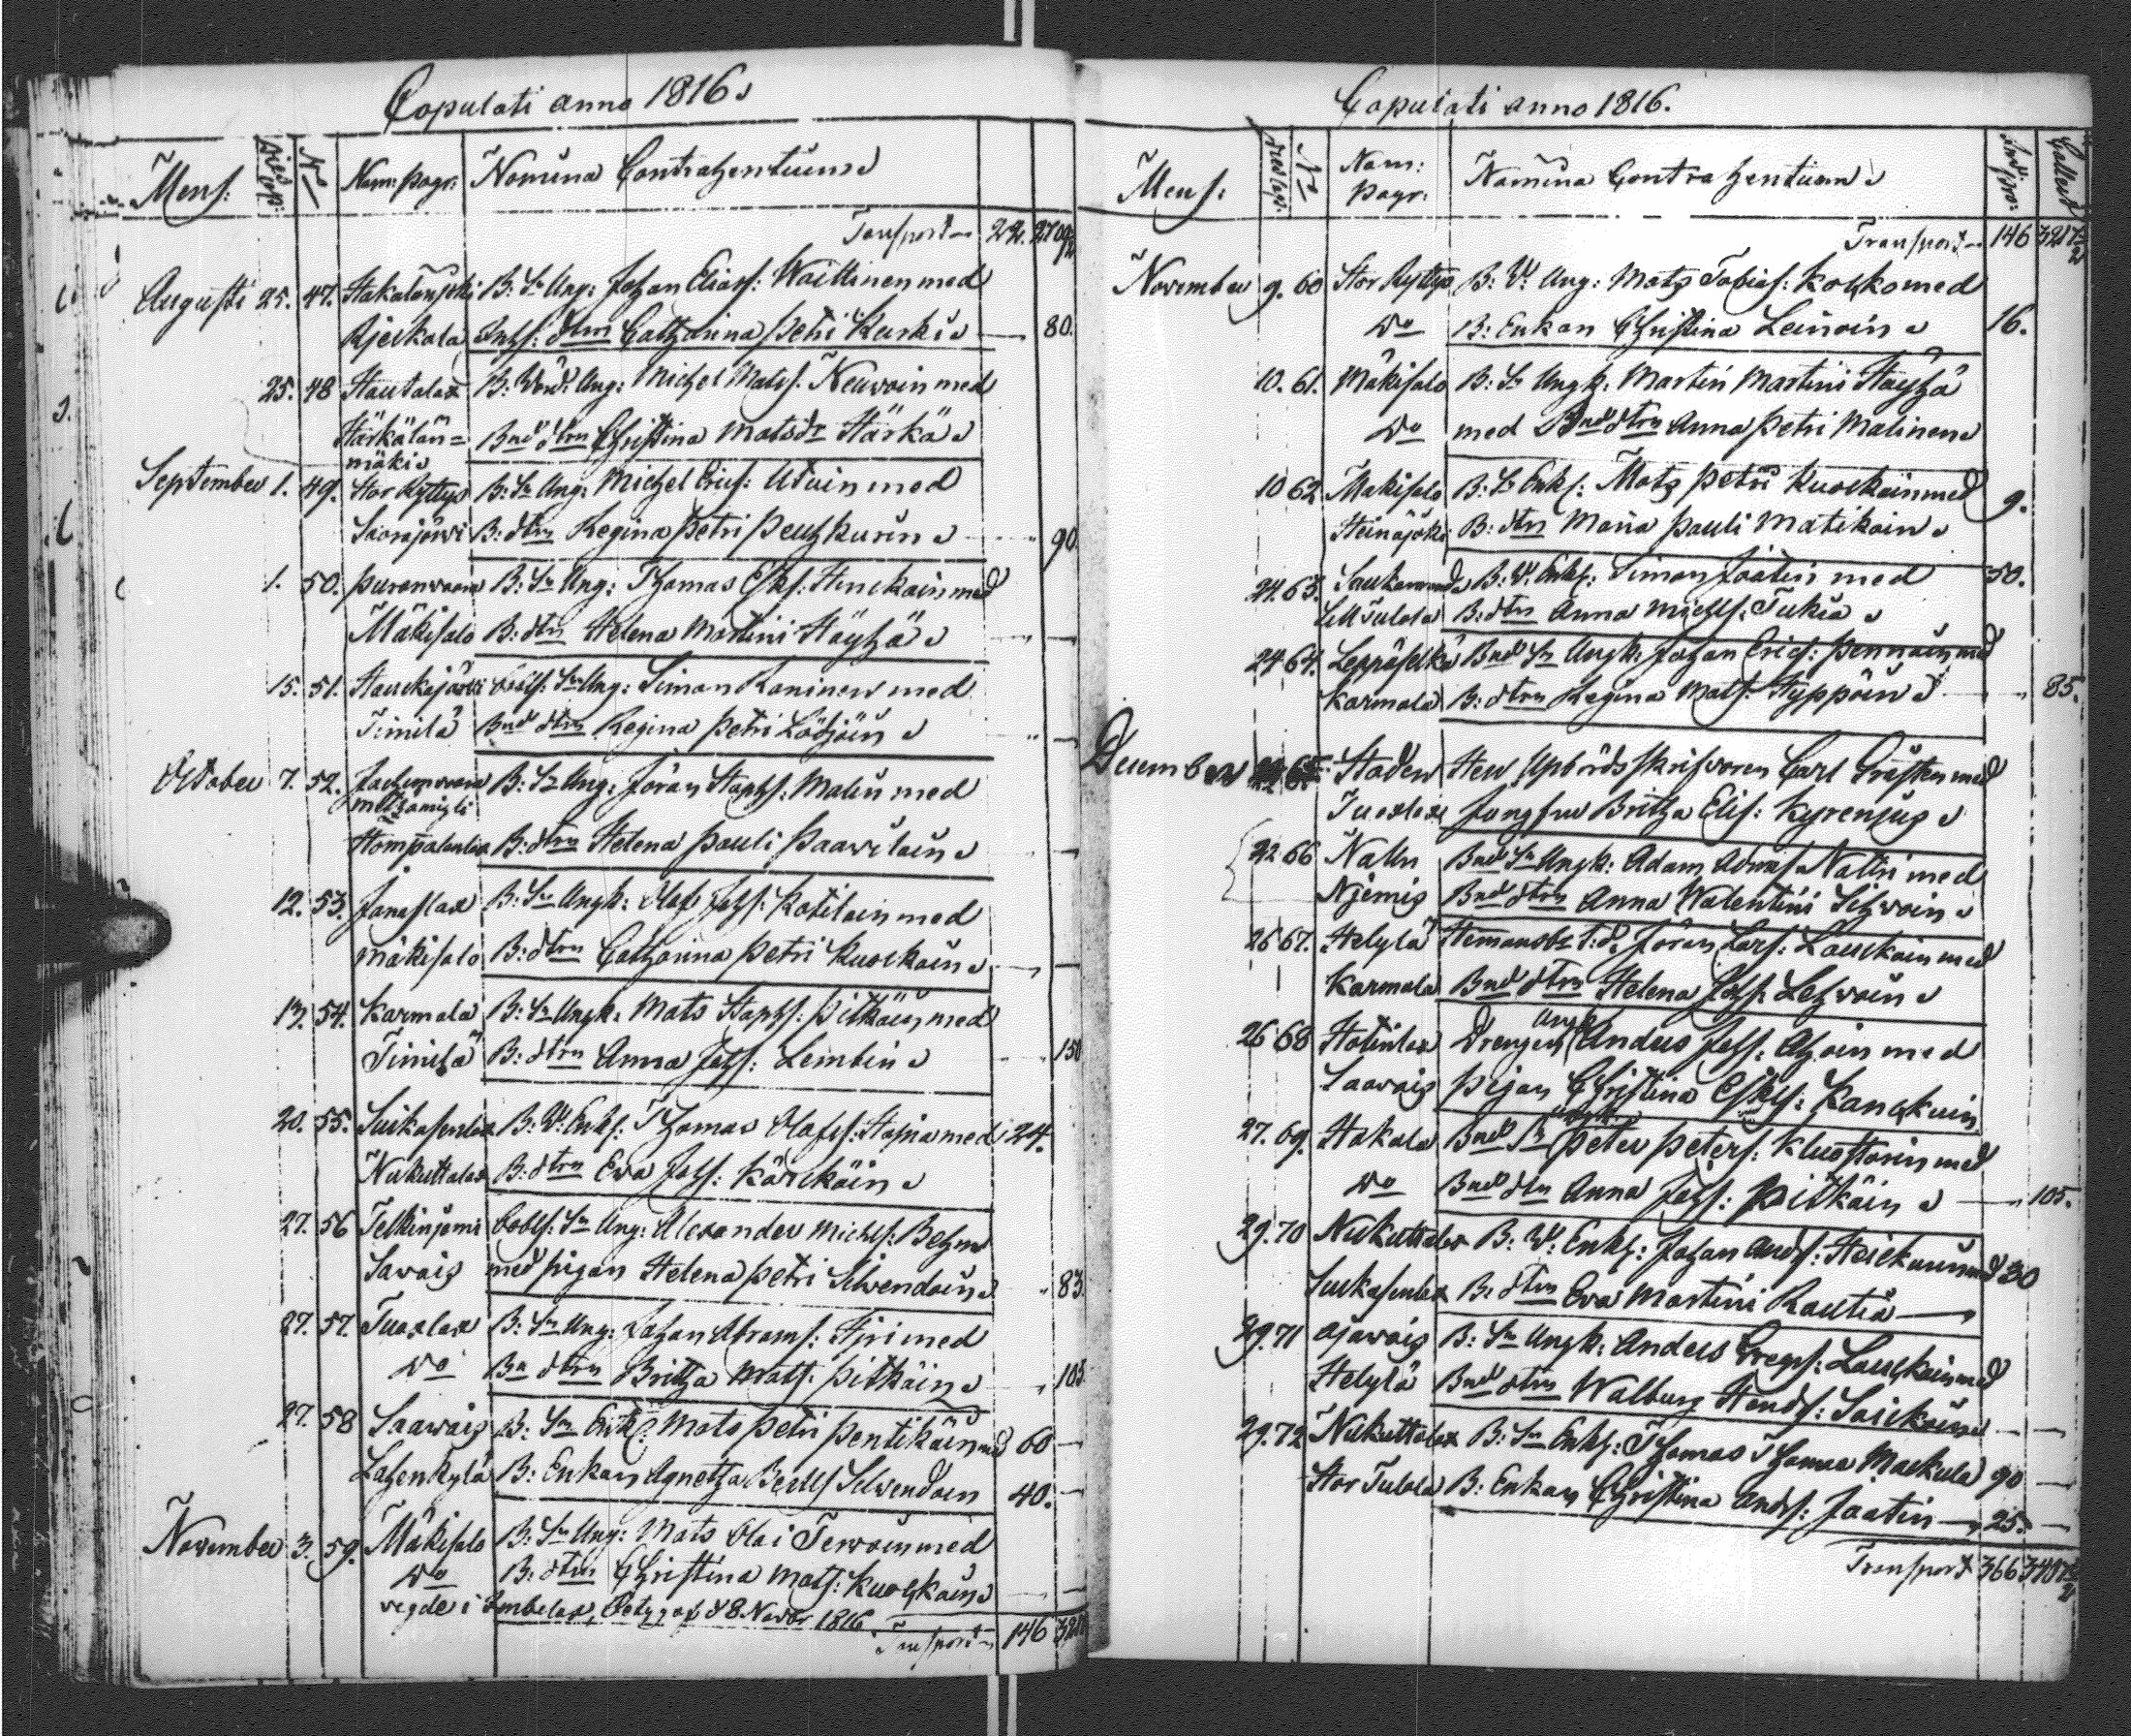 Copulati anno 1816.
Mens: Dies cop: No Nom: pagr: Nomina Contrahentium
Transport 22. 27
Augusti 25. 47. B: Sn Ung: Johan Eliass: Waittinen med
Rjekala Inhs: dtrn Catharina Petri Kurki 80.
25. 48 Hautalax B: Ung: Michel Mats: Neuvoin med
Härkälän= Bnd dtrn Christina Matsdr Härkä
mäki
September 1. 49. Stor Ryttys B: Sn Ung: Michel Erics: Utuin med
Saarajärwi B: dtrn Regina Petri Peuhkurin 90
1. 50. Purenwaara B: Sn Ung: Thomas Esks: Hinckain med
Mäkisalo B: dtrn Helena Martini Häyhä
15. 51. Hauckajärwi Sn Ung: Simon Raninen med
Timila Bnd dtrn Regina Petri
October 7. 52. B: Sn Ung: Jöran Staphs: Malin med
Hompalanlax B: dtrn Helena Pauli Paawilain
12. 53. Janaslax B: Sn Ungk: Olof Johs: Kotilain med
Mäkisalo B: dtrn Catharina Petri Kuockain
13. 54. Karmala B: Sn Ungk: Mats Staphs: Pitkäin med
Timila B: dtrn Anna Johs: Lembin 150
20. 55. Suikasenlax B: W: Enkl: Thomas Olofss: Hojna med 24.
Nukuttalax B: dtrn Eva Johs: Kärckäin
27. 56 Telkinjemi Sn Ung: Alexander Michls: Behm
Sawaig med pigan Helena Petri Silwendoin 83.
27. 57. Tuoslax B: Sn Ung: Johan Abrams: Hjri med
Do Bn dtrn Britha Mats: Pitkäin 103
27. 58 Saawaig B: Sn Enkl: Mats Petri Pentikäin med 60
Lahenkylä B: Enkan Agnetha Bertls Silwendoin 40.
November 3. 59. Mäkisalo B: Sn Ung: Mats Olai Terwoin med
Do B: dtrn Christina Mats: Kuockain
vigde i Imbelax, d 8 Novbr 1816
Transport 146 321
Copulati anno 1816.
Mens: Dies cop: No Nom: Pagr: Nomina Contrahentium
Transport 146 321
November 9. 60 Stor Ryttys B: W: Ung: Mats Tobias: Kolko med
Do B: Enkan Christina Leinoin 16.
10. 61. Mäkisalo B: Sn Ungk: Martin Martini Häyhä
Do med Bnd dtrn Anna Petri Malinen
10 62 Mäkisalo B: S Enkl: Mats Petri Kuockain med 9.
Heinäjoki B: dtrn Maria Pauli Matikain
24. 63. B: W: Enkl: Simon Jäätin med 50.
Lill Tulola B: dtrn Anna Michls: Tukia
24 64. Leppäselkä Bnd Sn Ungk: Johan Erics: Pennäin med
Karmala B: dtrn Regina Mats: Hyppöin 85.
December 22 65. Staden Herr Upbördsskrifvaren Carl Gråsten med
Tuoslax Jungfru Britha Elis: Kyrenjus
22 66 Bnd Sn Ungk: Adam Adams: Natin med
Njemis Bnd dtrn Anna Walentini Silwoin
26 67. Helylä Hemmansbr: Jöran Lars: Lauckain med
Karmala Bnd dtrn Helena Johs: Lehvoin
26 68 Hotinlax Drengen Ungk: Anders Johs: Ahoin med
Saawaig Pigan Christina Eskls: Kanckuin
27. 69. Hakala Bnd Sn Ungk: Peter Peters: Kluostarin med
Do Bnd dtrn Anna Johs: Pitkäin 105.
29. 70 Nukuttalax B: W: Enkl: Johan Ands: Heickuin med 30
Suikasenlax B: dtrn Eva Martini Rautia
29. 71 B: Sn Ungk: Anders Gregs: Lauckain med
Helylä Bnd dtrn Walborg Hends: Saickoin
29. 72 Nukuttalax B: Sn Enkl: Thomas Thomæ Mackula 90
Stor Tulola B: Enkan Christina Ands: Jaatin 25.
Transport 366